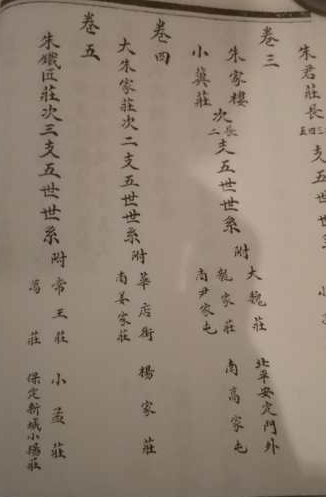 朱君莊長支五世世
卷三
朱家樓次長二支五世世系附大魏莊 北平安定門外
小冀莊 親家莊 南高家屯
南尹家屯
卷四
大朱家莊次二支五世世系附華店街 楊家莊
南姜家莊
卷五
朱鐵匠莊次三支五世世系附常王莊 小孟莊
馮莊 保定新城小豬莊